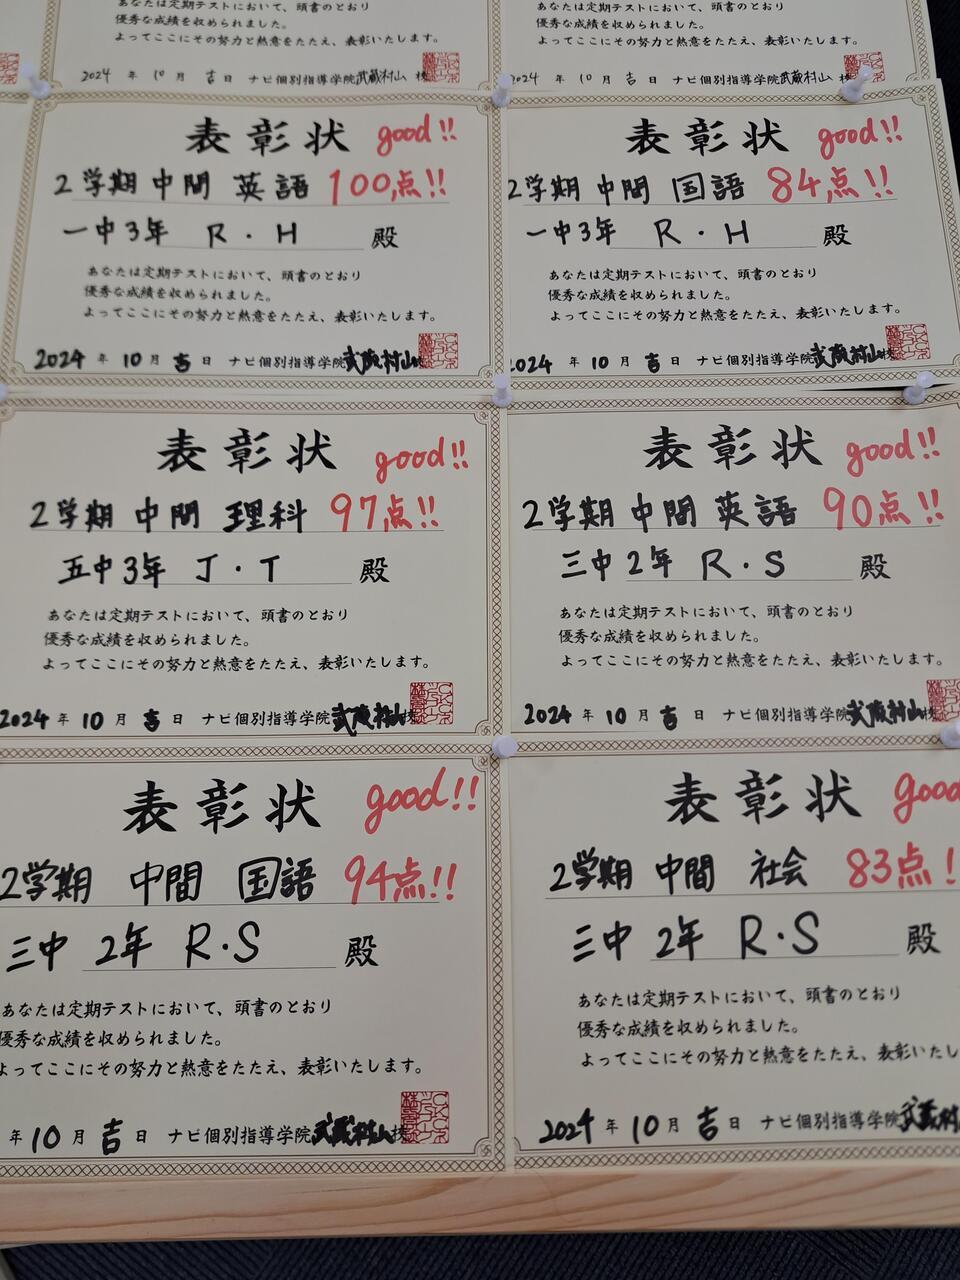 あなたは定期テストにおいて、頭書のとおり
優秀な成績を収められました。
よってここにその努力と熱意をたたえ、表彰いたします。
2024 年 10 月 吉 日 ナビ個別指導学院武蔵村山 校
あなたは定期テストにおいて、頭書のとおり
優秀な成績を収められました。
よってここにその努力と熱意をたたえ、表彰いたします。
2024 年 10 月 吉 日 ナビ個別指導学院武蔵村山 校
表彰状 good!!
2学期 中間 英語 100点!!
一中3年 R・H 殿
あなたは定期テストにおいて、頭書のとおり
優秀な成績を収められました。
よってここにその努力と熱意をたたえ、表彰いたします。
2024 年 10 月 吉 日 ナビ個別指導学院武蔵村山校
表彰状 good!!
2学期 中間 国語 84点!!
一中3年 R・H 殿
あなたは定期テストにおいて、頭書のとおり
優秀な成績を収められました。
よってここにその努力と熱意をたたえ、表彰いたします。
2024 年 10 月 吉 日 ナビ個別指導学院武蔵村山校
表彰状 good!!
2学期 中間 理科 97点!!
五中3年 J・T 殿
あなたは定期テストにおいて、頭書のとおり
優秀な成績を収められました。
よってここにその努力と熱意をたたえ、表彰いたします。
2024 年 10 月 吉 日 ナビ個別指導学院武蔵村山校
表彰状 good!!
2学期 中間 英語 90点!!
三中2年 R・S 殿
あなたは定期テストにおいて、頭書のとおり
優秀な成績を収められました。
よってここにその努力と熱意をたたえ、表彰いたします。
2024 年 10 月 吉 日 ナビ個別指導学院武蔵村山校
表彰状 good!!
2学期 中間 国語 94点!!
三中 2年 R・S 殿
あなたは定期テストにおいて、頭書のとおり
優秀な成績を収められました。
よってここにその努力と熱意をたたえ、表彰いたします。
年 10 月 吉 日 ナビ個別指導学院武蔵村山校
表彰状 good
2学期 中間 社会 83点!
三中 2年 R・S 殿
あなたは定期テストにおいて、頭書のとおり
優秀な成績を収められました。
よってここにその努力と熱意をたたえ、表彰いたし
2024 年 10 月 吉 日 ナビ個別指導学院武蔵村